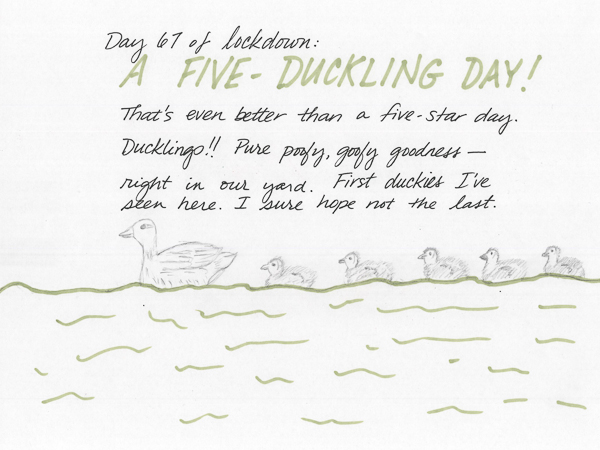 Day 67 of lockdown:
A FIVE-DUCKLING DAY!
That's even better than a five-star day.
Ducklings!! Pure poofy, goofy goodness—
right in our yard. First duckies I've
seen here. I sure hope not the last.